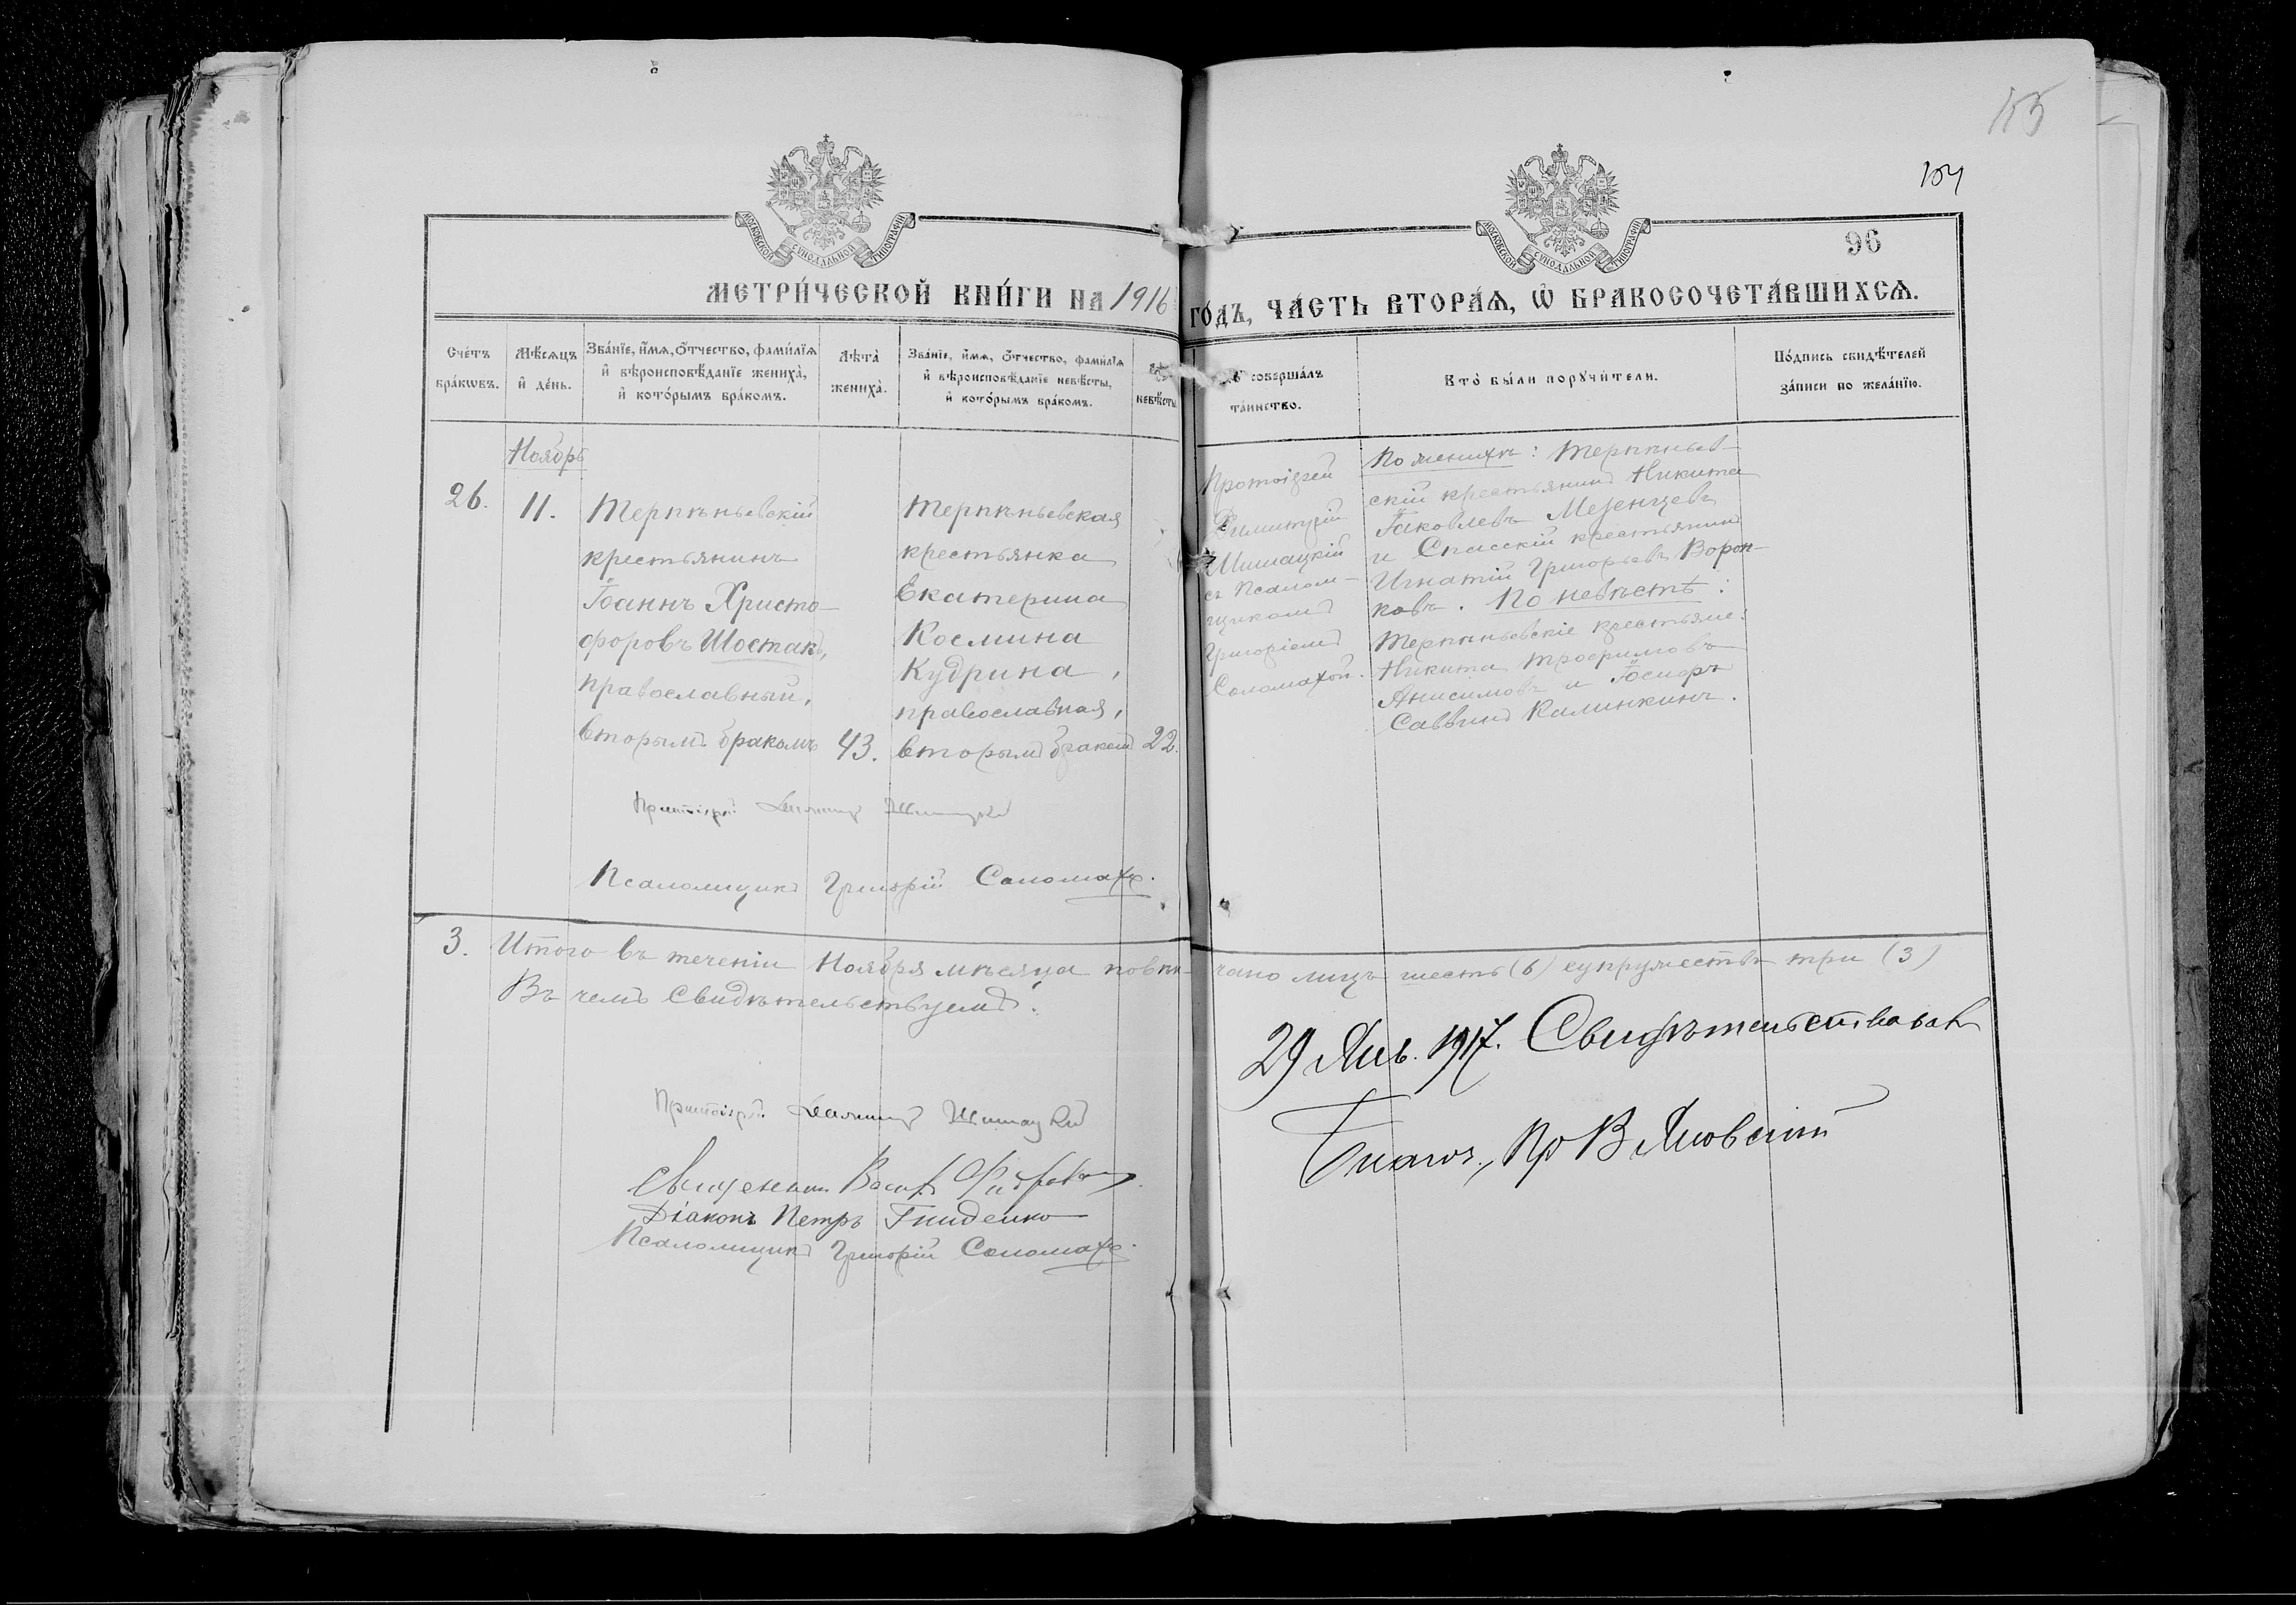 155
104
МОСКОВСКОЙ СѴНОДАЛЬНОЙ ТИПОГРАФІИ
МОСКОВСКОЙ СѴНОДАЛЬНОЙ ТИПОГРАФІИ
96
МЕТРИ́ЧЕСКОЙ КНИ́ГИ НА 1916 ГО́ДЪ, ЧА́СТЬ ВТОРА́Ѧ, Ѡ҆ БРАКОСОЧЕТА́ВШИХСѦ.
Сче́тъ
бра́кѡвъ.
Мѣ́сѧцъ
и҆ де́нь.
Зва́нїе, и҆́мѧ, ѻ҆́тчество, фами́лїѧ
и҆ вѣроисповѣ́данїе жениха̀,
и҆ кото́рымъ бра́комъ.
Лѣта̀
жениха̀.
Зва́нїе, и҆́мѧ, ѻ҆́тчество, фами́лїѧ
и҆ вѣроисповѣ́данїе невѣ́сты,
и҆ кото́рымъ бра́комъ.
невѣ́сты
соверша́лъ
та́инство.
Кто̀ бы́ли порꙋчи́тели.
По́дпись свидѣ́телей
за́писи по жела́нїю.
Ноябрь
26.
11.
Терпѣньевскій
крестьянинъ
Іоаннъ Христо-
форовъ Шостакъ,
православный,
вторымъ бракомъ
43.
Терпѣньевская
крестьянка
Екатерина
Космина
Кудрина,
православная,
вторымъ бракомъ
22.
Протоіерей
Димитрій
Шишацкій
съ Псалом-
щикомъ
Григоріемъ
Соломахой.
По женихѣ: Терпѣньев-
скій крестьянинъ Никита
Іаковлевъ Мезенцевъ
и Спасскій крестьянинъ
Игнатій Григорьевъ Ворон-
ковъ. По невѣстѣ:
Терпѣньевскіе крестьяне:
Никита Трофимовъ
Анисимовъ и Іосифъ
Саввинъ Калинкинъ.
Протоіерей Димитрій Шишацкій
Псаломщикъ Григорій Соломаха.
3. Итого въ теченіи Ноября мѣсяца повѣн-чано лицъ шесть (6) супружествъ три (3)
Въ чемъ свидѣтельствуемъ:
29 Янв. 1917. Свидѣтельствовалъ
Благоч., Пр В Яновскій
Протоіерей Димитрій Шишацкій
Священникъ
Діаконъ Петръ Гниденко
Псаломщикъ Григорій Соломаха.